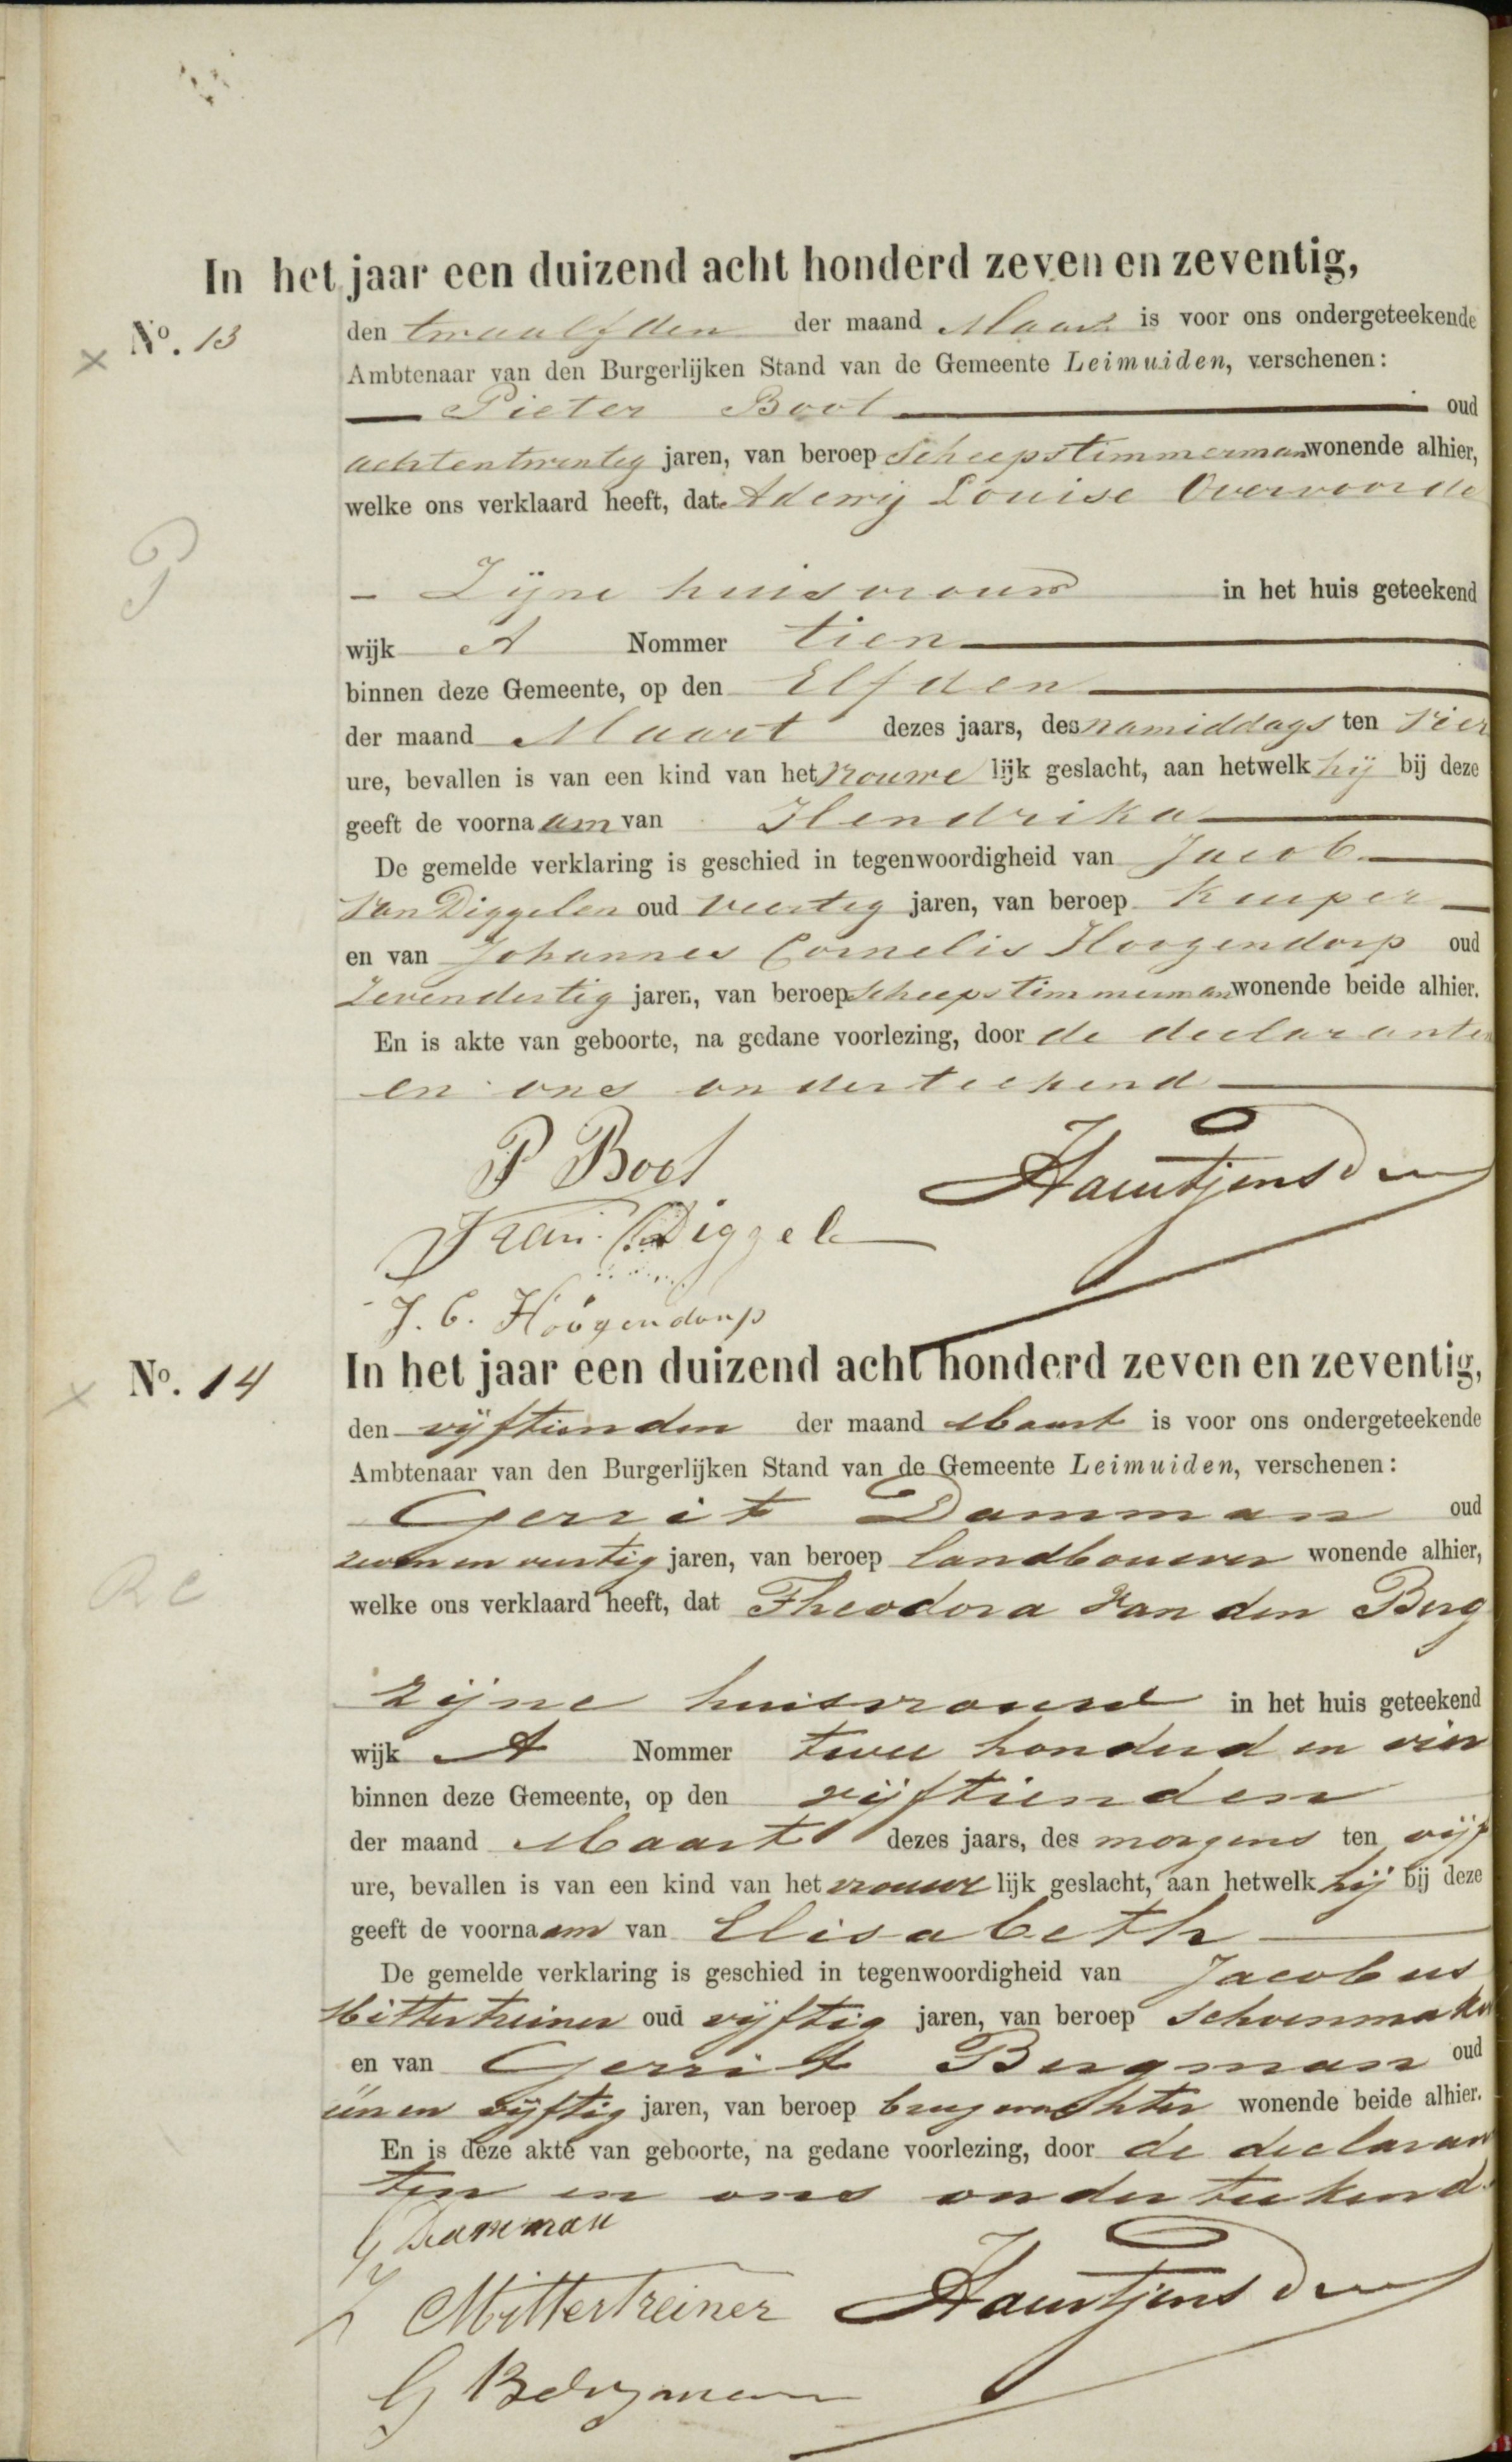 In het jaar een duizend acht honderd zeven en zeventig,
No. 13
den twaalfden der maand Maart is voor ons ondergeteekende
Ambtenaar van den Burgerlijken Stand van de Gemeente Leimuiden, verschenen:
Pieter Boot oud
achtentwintig jaren, van beroep Scheepstimmerman wonende alhier,
welke ons verklaard heeft, dat Louise Overvoorde
Zijne huisvrouw in het huis geteekend
wijk A Nommer tien
binnen deze Gemeente, op den Elfden
der maand Maart dezes jaars, des namiddags ten vier
ure, bevallen is van een kind van het vrouwelijk geslacht, aan hetwelk hij bij deze
geeft de voornaam van Hendrika
De gemelde verklaring is geschied in tegenwoordigheid van Jacob
Van Diggelen oud veertig jaren, van beroep Kuiper
en van Johannes Cornelis Hoogendorp oud
Zevendertig jaren, van beroep Scheepstimmerman wonende beide alhier.
En is akte van geboorte, na gedane voorlezing, door de declaranten
en ons onderteekend
P Boot
Diggele
J. C. Hoogendorp
No. 14
In het jaar een duizend acht honderd zeven en zeventig,
den vijftienden der maand Maart is voor ons ondergeteekende
Ambtenaar van den Burgerlijken Stand van de Gemeente Leimuiden, verschenen:
Gerrit Damman oud
zeven en veertig jaren, van beroep landbouwer wonende alhier,
welke ons verklaard heeft, dat Theodora van den Berg
zijne huisvrouw in het huis geteekend
wijk A Nommer twee honderd en vier
binnen deze Gemeente, op den vijftienden
der maand Maart dezes jaars, des morgens ten vijf
ure, bevallen is van een kind van het vrouwelijk geslacht, aan hetwelk hij bij deze
geeft de voornaam van Elisabeth
De gemelde verklaring is geschied in tegenwoordigheid van Jacobus
Mittertreiner oud vijftig jaren, van beroep schoenmaker
en van Gerrit Bergman oud
een en vijftig jaren, van beroep brugwachter wonende beide alhier.
En is deze akte van geboorte, na gedane voorlezing, door de declaran
ten en ons onderteekend.
G Damman
J Mittertreiner
G Bergman